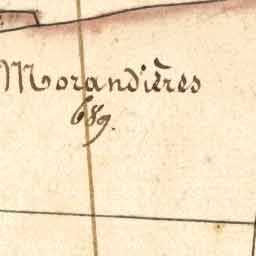 Morandières
689.